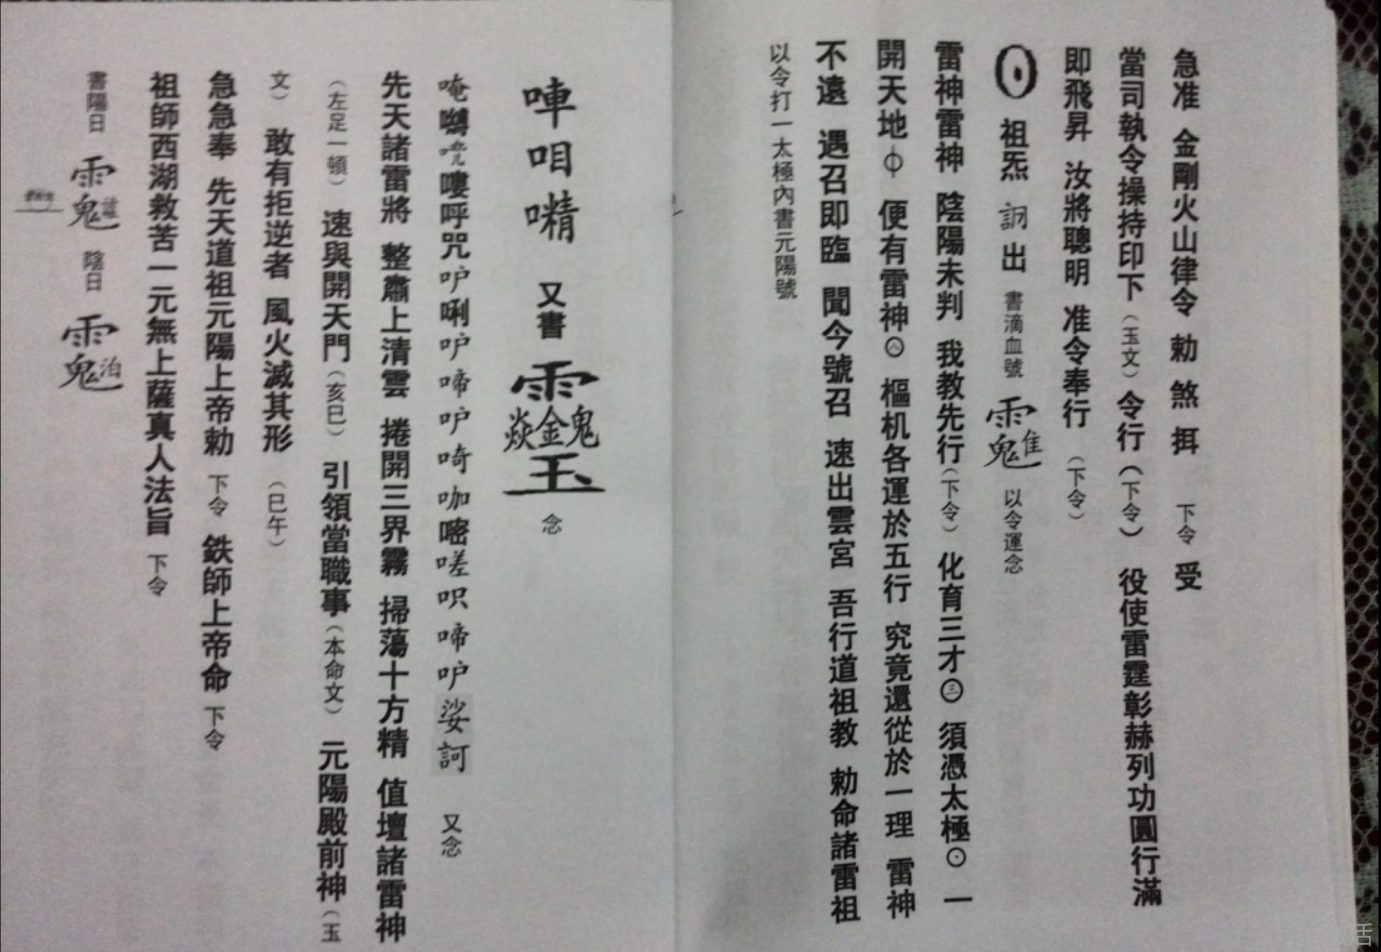 急准 金剛火山律令 勅 煞 挕 下令 受
當司執令操持印下（玉文）令行（下令） 役使雷霆彰赫列功圓行滿
即飛昇 汝將聰明 准令奉行 （下令）
祖炁 出 書滴血號 以令運念
雷神雷神 陰陽未判 我教先行（下令） 化育三才㊂ 須憑太極⊙ 一
開天地 便有雷神 樞机各運於五行 究竟還從於一理 雷神
不遠 遇召即臨 聞今號召 速出雲宮 吾行道祖教 勅命諸雷祖
以令打一太極內書元陽號
唓 咱 又書 念
唵 嘍呼咒 唎 啼 咖嘧嗟呎 啼 娑訶 又念
先天諸雷將 整肅上清雲 捲開三界霧 掃蕩十方精 值壇諸雷神
（左足一頓） 速與開天門（亥巳） 引領當職事（本命文） 元陽殿前神（玉
文） 敢有拒逆者 風火滅其形 （巳午）
急急奉 先天道祖元陽上帝勅 下令 鉄師上帝命 下令
祖師西湖救苦一元無上薩真人法旨 下令
書陽日 陰日